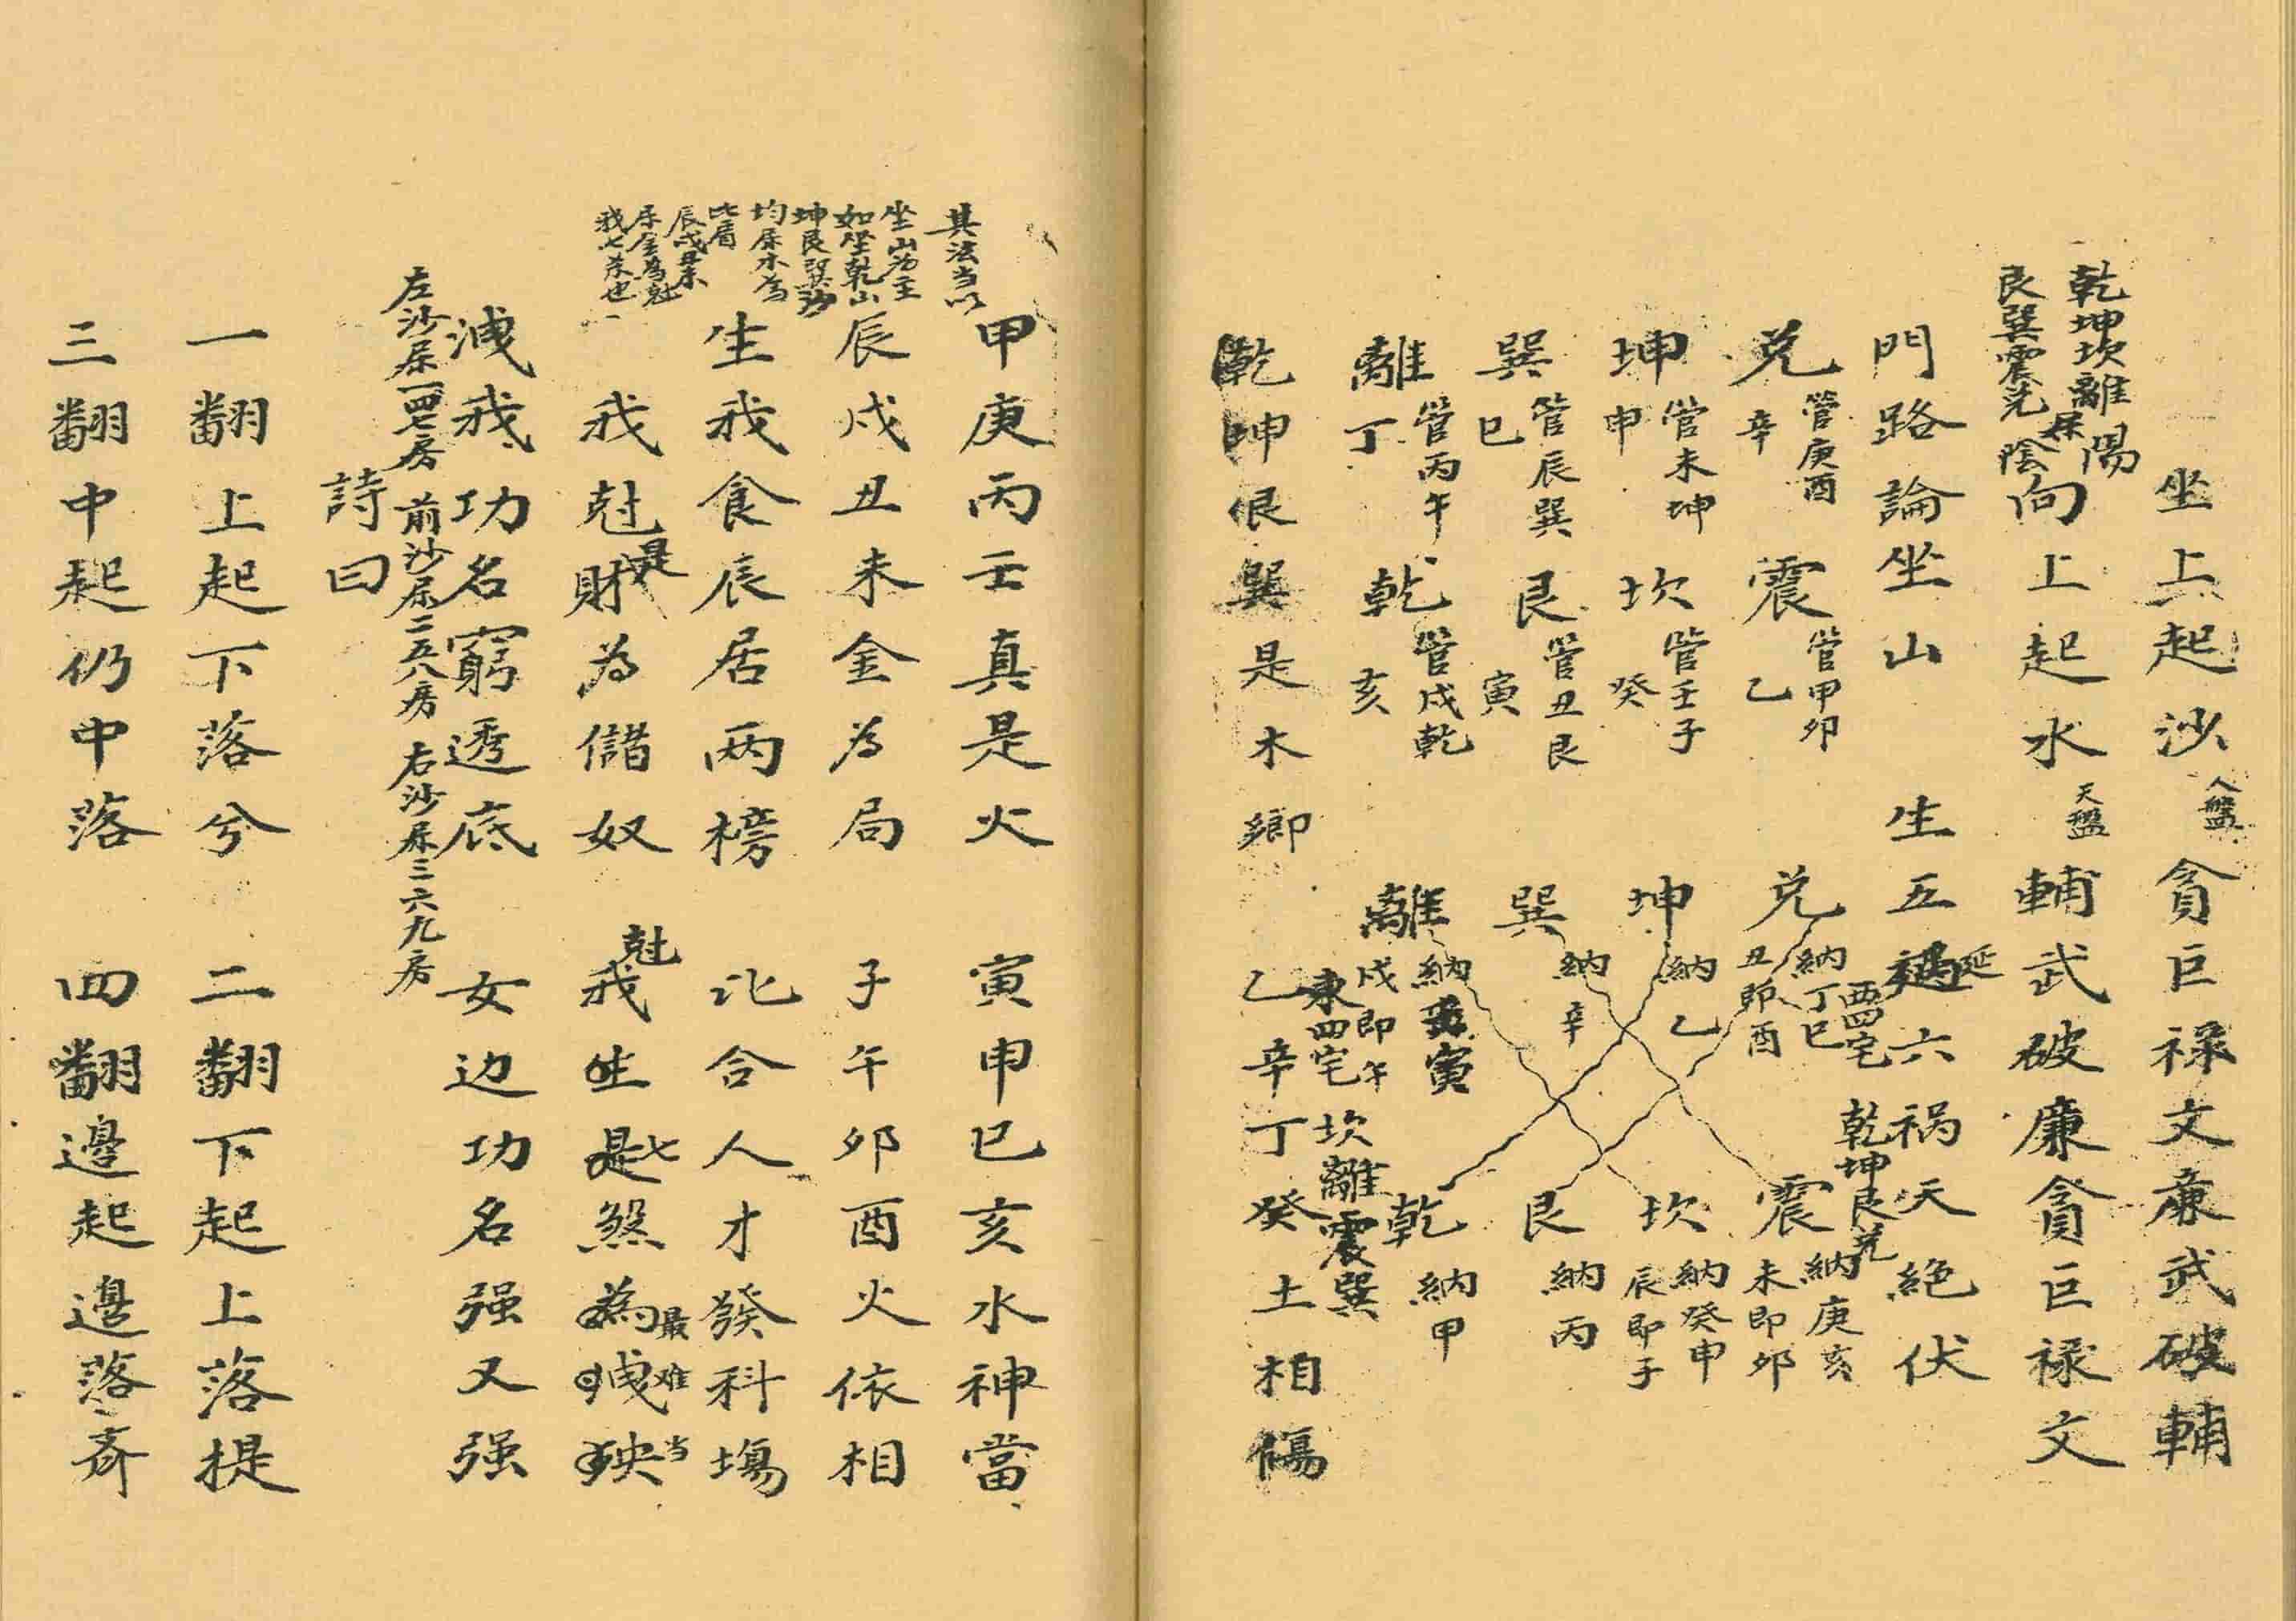 坐上起沙 人盤 貪巨祿文廉武破輔
乾坤坎離屬陽
艮巽震兌陰
向上起水 天盤 輔武破廉貪巨祿文
門路論坐山 生五延六祸天絶伏
兌 管庚酉辛 震 管甲卯乙
坤 管未坤申 坎 管壬子癸
巽 管辰巽巳 艮 管丑艮寅
離 管丙午丁 乾 管戌乾亥
兌 納丁巳丑即酉 震 納庚亥未即卯
西四宅 乾坤艮兌
坤 納乙 坎 納癸申辰即子
巽 納辛 艮 納丙
離 納寅戌即午 乾 納甲
東四宅 坎離震巽
乾坤艮巽是木鄉 乙辛丁癸土相傷
甲庚丙壬真是火 寅申巳亥水神當
其法当以
坐山为主
如坐乾山
坤艮巽沙
均屬木為
比肩
辰戌丑未
屬金為尅
我七杀也
辰戌丑未金為局 子午卯酉火依相
生我食辰居两榜 比合人才發科場
我尅是財為儲奴 尅我是七煞最难当
洩我功名窮透底 女边功名强又强
左沙屬一四七房 前沙屬二五八房 右沙屬三六九房
詩曰
一翻上起下落兮 二翻下起上落提
三翻中起仍中落 四翻邊起邊落斉